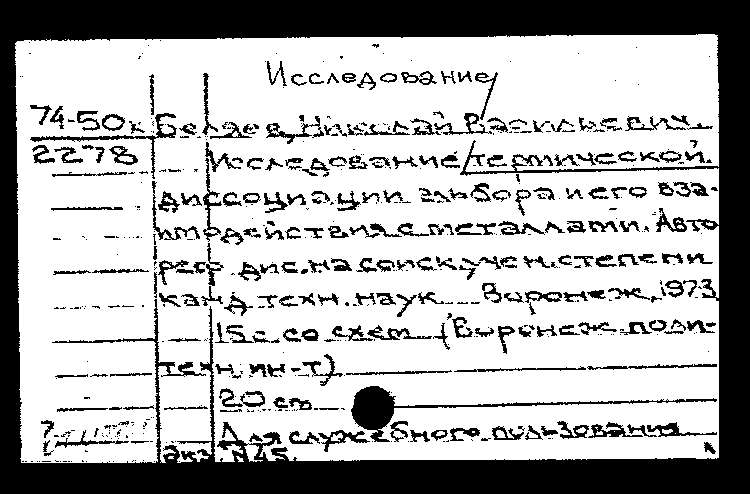 Исследование/
74-50к Беляев, Николай Васильевич.
2278 Исследование/термической
диссоциации эльбора и его вза-
имодействия с металлами. Авто
реф дис. на соиск. учен. степени
канд. техн. наук Воронеж, 1973
15 с. со схем (Воронеж. поли-
техн. ин-т)
20 см
Для служебного пользования
экз. N 45.